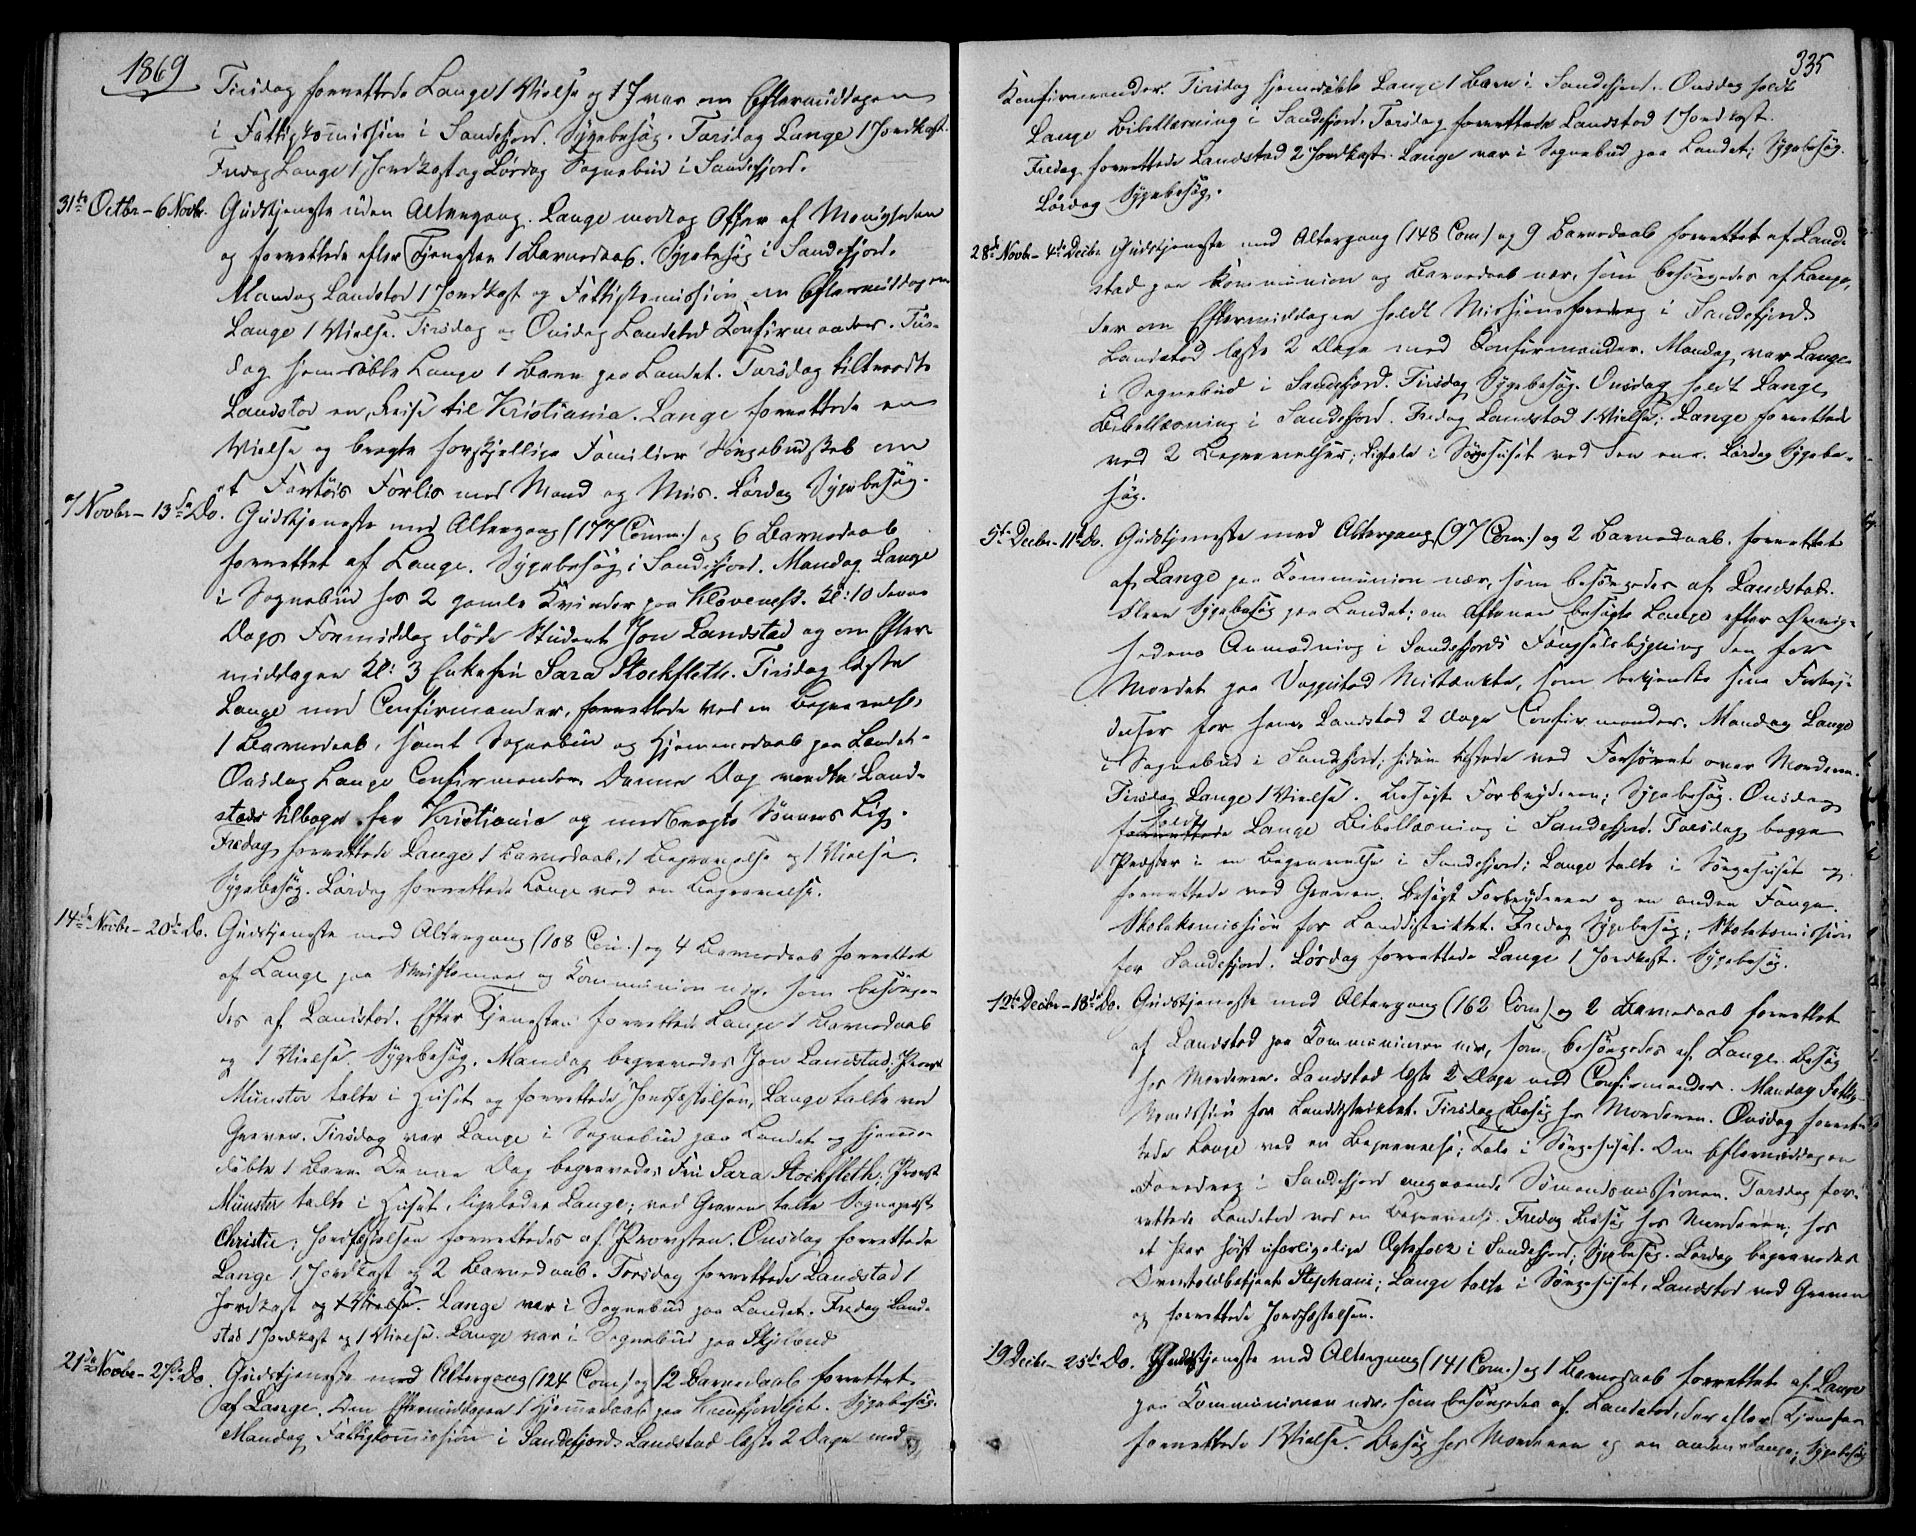 1869
Tirsdag forrettede Lange 1 Vielse og var om Eftermiddagen
i Fattigkommission i Sandefjord. Sygebesøg. Torsdag Lange 1 Jordkast.
Fredag Lange 1 Jordkast og Lørdag Sognebud i Sandefjord.
31te Octbr – 6 Novbr. Gudstjeneste uden Altergang. Lange modtog Offer af Menigheden
og forrettede efter Tjenesten 1 Barnedaab. Sygebesøg i Sandefjord.
Mandag Landstad 1 Jordkast og Fattigkomission om Eftermiddagen
Lange 1 Vielse. Tirsdag og Onsdag Landstad Konfirmander. Tirs-
dag hjemdøbte Lange 1 Barn paa Landet. Torsdag tiltraadte
Landstad en Reise til Kristiania. Lange forrettede en
Vielse og bragte forskjellige Familier Sørgebudskab om
et Fartøis Forlis med Mand og Mus. Lørdag Sygebesøg.
7 Novbr – 13de Do. Gudstjeneste med Altergang (177 Comm.) og 6 Barnedaab
forrettet af Lange. Sygebesøg i Sandefjord. Mandag Lange
i Sognebud hos 2 gamle Kvinder paa Klaveness. Kl: 10 denne
Dags Formiddag døde Student Jon Landstad og om Efter-
middagen Kl: 3 Enkefru Sara Stockfleth. Tirsdag læste
Lange med Confirmander, forrettede ved en Begravelse,
1 Barnedaab, samt Sognebud og Hjemmedaab paa Landet.
Onsdag Lange Confirmander. Denne Dag vendte Land-
stad tilbage fra Kristiania og medbragte Sønnens Lig.
Fredag forrettede Lange 1 Barnedaab, 1 Begravelse og 1 Vielse.
Sygebesøg. Lørdag forrettede Lange ved en Begravelse.
14de Novbr – 20de Do. Gudstjeneste med Altergang (108 Com.) og 4 Barnedaab forrettet
af Lange paa Skriftemaal og Kommunion nær, som besørge-
des af Landstad. Efter Tjenesten forrettede Lange 1 Barnedaab
og 1 Vielse. Sygebesøg. Mandag begravedes Jon Landstad: Provst
Münster talte i Huset og forrettede Jordfæstelsen, Lange talte ved
Graven. Tirsdag var Lange i Sognebud paa Landet og hjemme-
døbte 1 Barn. Denne Dag begravedes Fru Sara Stockfleth; Provst
Münster talte i Huset, ligeledes Lange; ved Graven talte Sognepræst
Christie; Jordfæstelsen forrettedes af Provsten. Onsdag forrettede
Lange 1 Jordkast og 2 Barnedaab. Torsdag forrettede Landstad 1
Jordkast og 1 Vielse. Lange var i Sognebud paa Landet. Fredag Land-
stad 1 Jordkast og 1 Vielse. Lange var i Sognebud paa
21de Novbr – 27de Do. Gudstjeneste med Altergang (124 Com.) og 12 Barnedaab forrettet
af Lange. Om Eftermiddagen 1 Hjemmedaab paa. Sygebesøg.
Mandag Fattigkommission i Sandefjord. Landstad læste 2 Dage med
335
Konfirmander. Tirsdag hjemdøbte Lange 1 Barn i Sandefjord. Onsdag holdt
Lange Bibellæsning i Sandefjord. Torsdag forrettede Landstad 1 Jordkast.
Fredag forrettede Landstad 2 Jordkast. Lange var i Sognebud paa Landet; Sygebesøg.
Lørdag Sygebesøg.
28de Novbr – 4de Decbr. Gudstjeneste med Altergang (148 Com.) og 9 Barnedaab forrettet af Land-
stad paa Kommunion og Barnedaab nær, som besørgedes af Lange,
der om Eftermiddagen holdt Missionsforedrag i Sandefjord.
Landstad læste 2 Dage med Konfirmander. Mandag var Lange
i Sognebud i Sandefjord. Tirsdag Sygebesøg. Onsdag holdt Lange
Bibellæsning i Sandefjord. Fredag Landstad 1 Vielse; Lange forrettede
ved 2 Begravelser; Ligtale i Sørgehuset ved den ene. Lørdag Sygebe-
søg.
5te Decbr – 11te Do. Gudstjeneste med Altergang (97 Com.) og 2 Barnedaab forrettet
af Lange paa Kommunion nær, som besørgedes af Landstad.
Flere Sygebesøg paa Landet; om Aftenen besøgte Lange efter Øvrig-
hedens Anmodning i Sandefjords Fængselsbygning den for
Mordet paa Mistænkte, som bekjendte sine Forbry-
delser for ham. Landstad 2 Dage Confirmander. Mandag Lange
i Sognebud i Sandefjord; siden tilstede ved Forhøret over Morderen.
Tirsdag Lange 1 Vielse. Besøgt Forbryderen; Sygebesøg. Onsdag
holdt
forrettede Lange Bibellæsning i Sandefjord. Torsdag begge
Præster i en Begravelse i Sandefjord; Lange talte i Sørgehuset og
forrettede ved Graven. Besøgt Forbryderen og en anden Fange.
Skolekomission for Landdistriktet. Fredag Sygebesøg; Skolekomission
for Sandefjord. Lørdag forrettede Lange 1 Jordkast. Sygebesøg.
12te Decbr – 18de Do. Gudstjeneste med Altergang (162 Com) og 2 Barnedaab forrettet
af Landstad paa Kommunionen nær, som besørgedes af Lange. Besøg
hos Morderen. Landstad læste 2 Dage med Confirmander. Mandag Fattig-
komission for Landdistriktet. Tirsdag Besøg hos Morderen. Onsdag forret-
tede Lange ved en Begravelse; Tale i Sørgehuset. Om Eftermiddagen
Foredrag i Sandefjord angaaende Sømandsmissionen. Torsdag for-
rettede Landstad ved en Begravelse. Fredag Besøg hos Morderen, hos
et Par høist uforligelige Ægtefolk i Sandefjord; Sygebesøg. Lørdag begravedes
Overtoldbetjent Stephani; Lange talte i Sørgehuset, Landstad ved Graven
og forrettede Jordfæstelsen.
19 Decbr – 25de Do. Gudstjeneste med Altergang (141 Com.) og 1 Barnedaab forrettet af Lange
paa Kommunionen nær, som besørgedes af Landstad, der efter Tjenesten
forrettede 1 Vielse. Besøg hos Morderen og en anden Fange; Sygebesøg